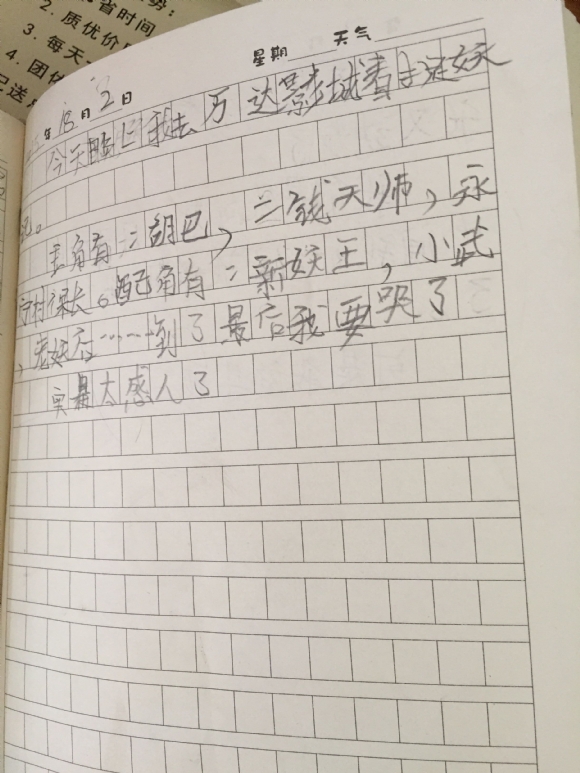 势:
省时间
2. 质优价
3. 每天
4. 团体
星期 天气
年 月2日
今天晚上我去万达影城看捉妖
记。
主角有:胡巴,二钱天师,永
宁村保长。配角有:新妖王,小武
,老妖后……到了最后我要哭了
实是太感人了